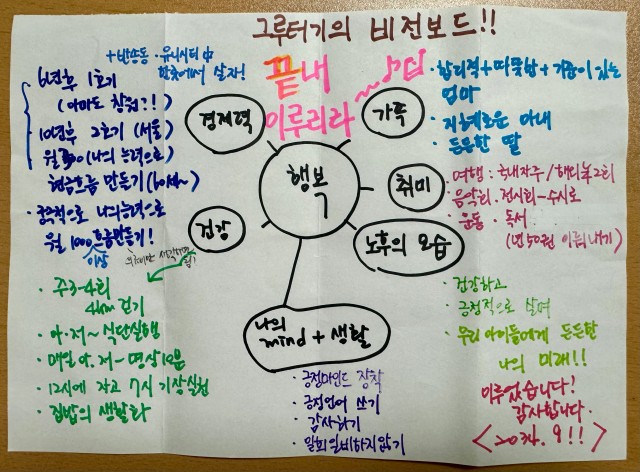 그루터기의 비전보드!!
끝내
이루리라
~~♪
행복
경제력
가족
취미
노후의 모습
건강
나의
mind + 생활
+ 반송동 · 유니시티 中
한곳에서 살자!
6년후 1호기
(아마도 창원?!)
10년후 2호기 (서울)
(나의 능력으로)
현금흐름 만들기
· 궁극적으로 나의능력으로
월 1000 흐름만들기!
이상
· 주3-4회
4km 걷기
· 아·저~ 식단실행
· 매일 아,저~명상10분
· 12시에 자고 7시 기상실천
· 집밥의 생활화
· 합리적+따뜻함+가끔이 있는
엄마
· 지혜로운 아내
· 든든한 딸
· 여행 : 국내자주/해외 年2회
· 음악회·전시회-수시로
· 운동 · 독서
(년50권 이루어내기)
· 건강하고
· 긍정적으로 살며
· 우리 아이들에게 든든한
나의 미래!!
이루었습니다!
감사합니다.
· 긍정마인드 장착
· 긍정언어 쓰기
· 감사하기
· 일희일비하지않기